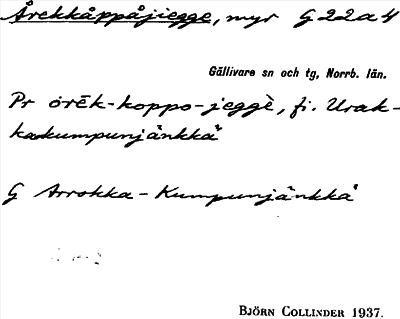 Årekkåppåjiegge, myr G 22 a 4
Gällivare sn och tg, Norrb. län.
Pr örēk-koppo-jeggè, fi. Urak-
kakumpunjänkkä
G Arrokka-Kumpunjänkkä
BJÖRN COLLINDER 1937.